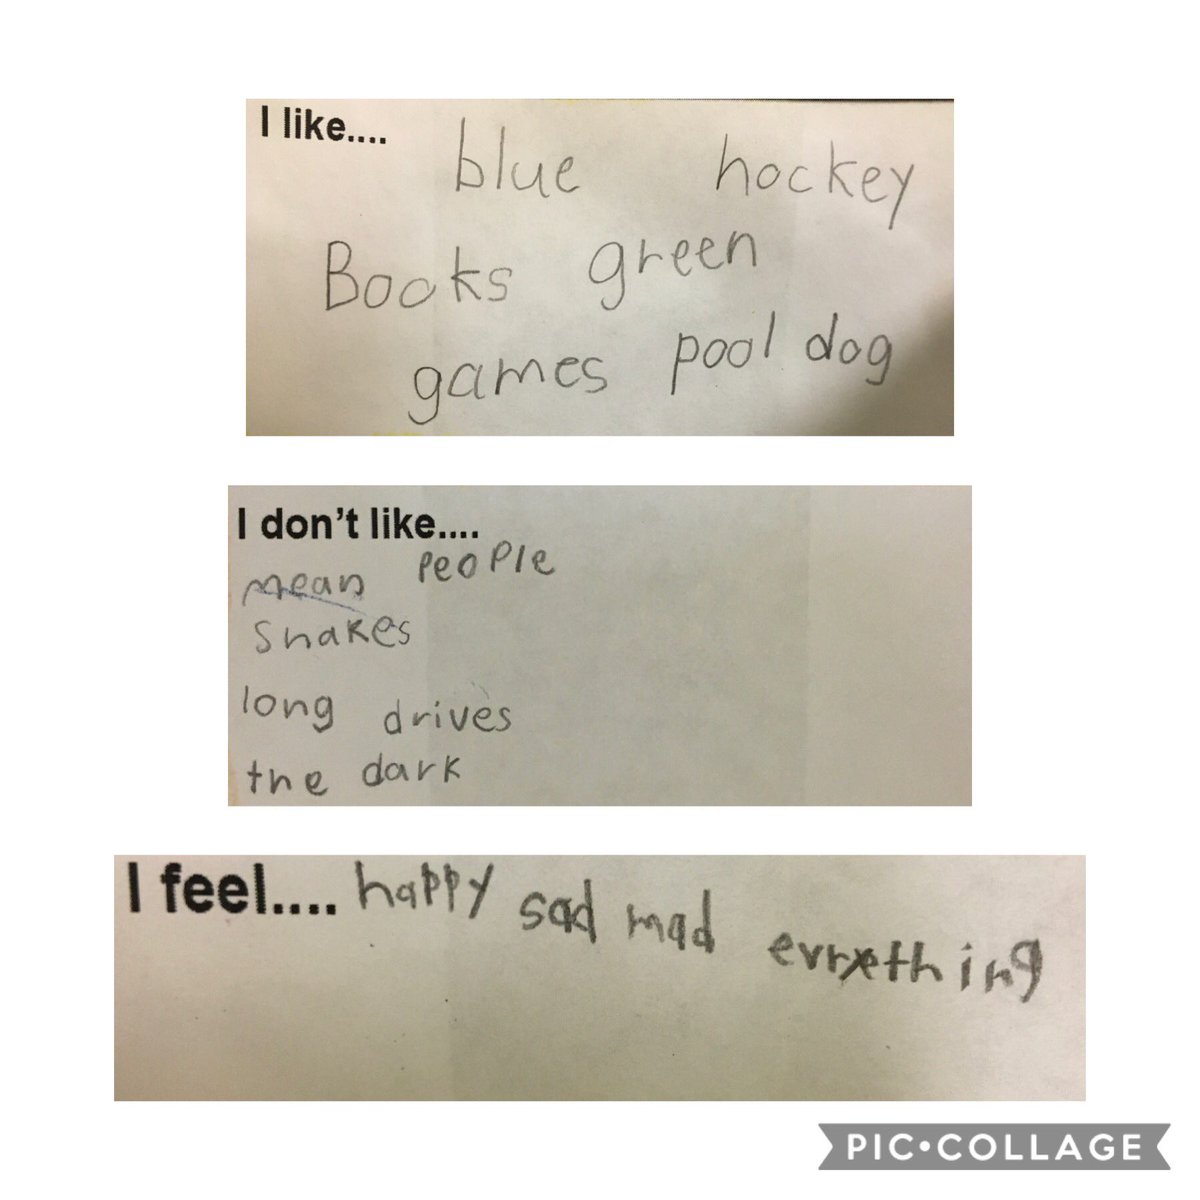 I like....
blue hockey
Books green
games pool dog
I don't like....
mean people
snakes
long drives
the dark
I feel.... happy sad mad evrything
PIC•COLLAGE